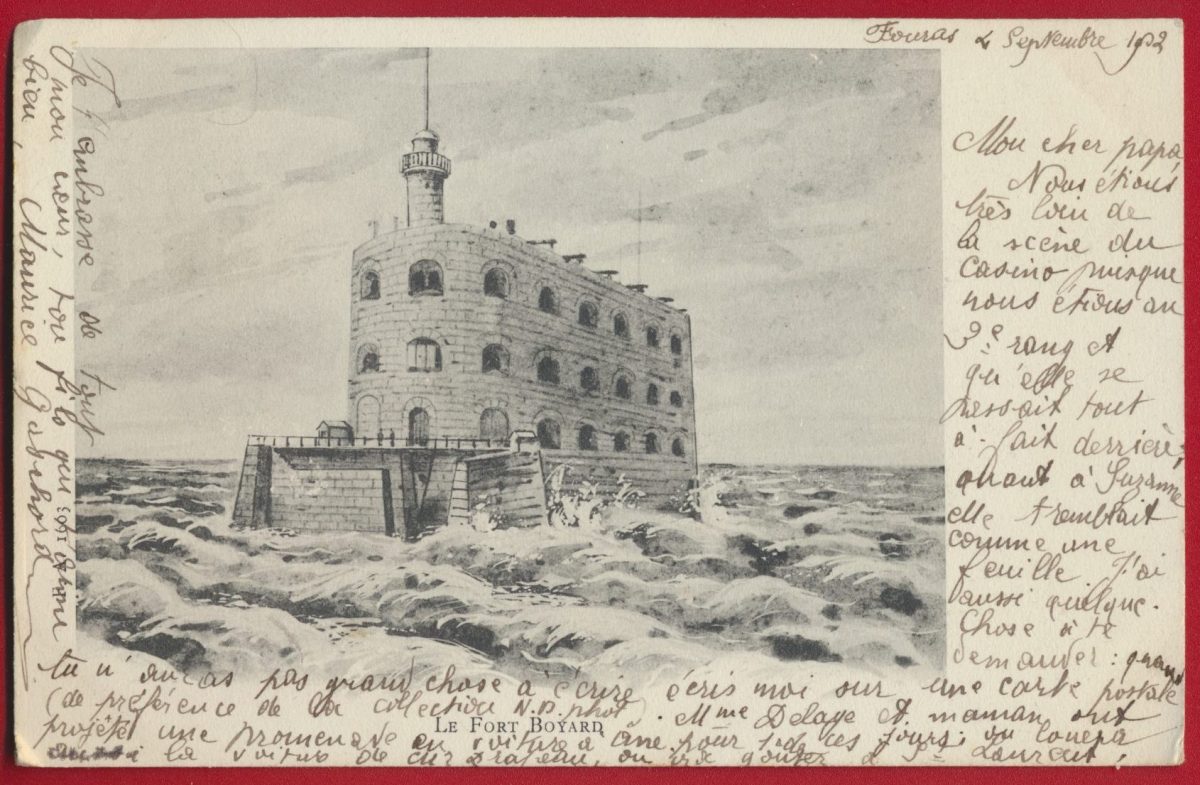 Fouras 2 Septembre 1902
Mon cher papa,
Nous étions
très loin de
la scène du
casino puisque
nous étions au
9e rang et
qu'elle se
passait tout
à fait derrière;
quant à Suzanne
elle tremblait
comme une
feuille. J'ai
aussi quelque
chose à te
demander: quand
tu n'auras pas grand chose à écrire écris moi sur une carte postale
(de préférence de la collection N.D. phot). Mme Delage et maman ont
projeté une promenade en voiture à âne pour de ces jours: on louera
la voiture de ou ira goûter à St Laurent;
Je t'embrasse de tout
mon cœur, ton fils qui t'aime
bien, Maurice Gabehord
LE FORT BOYARD